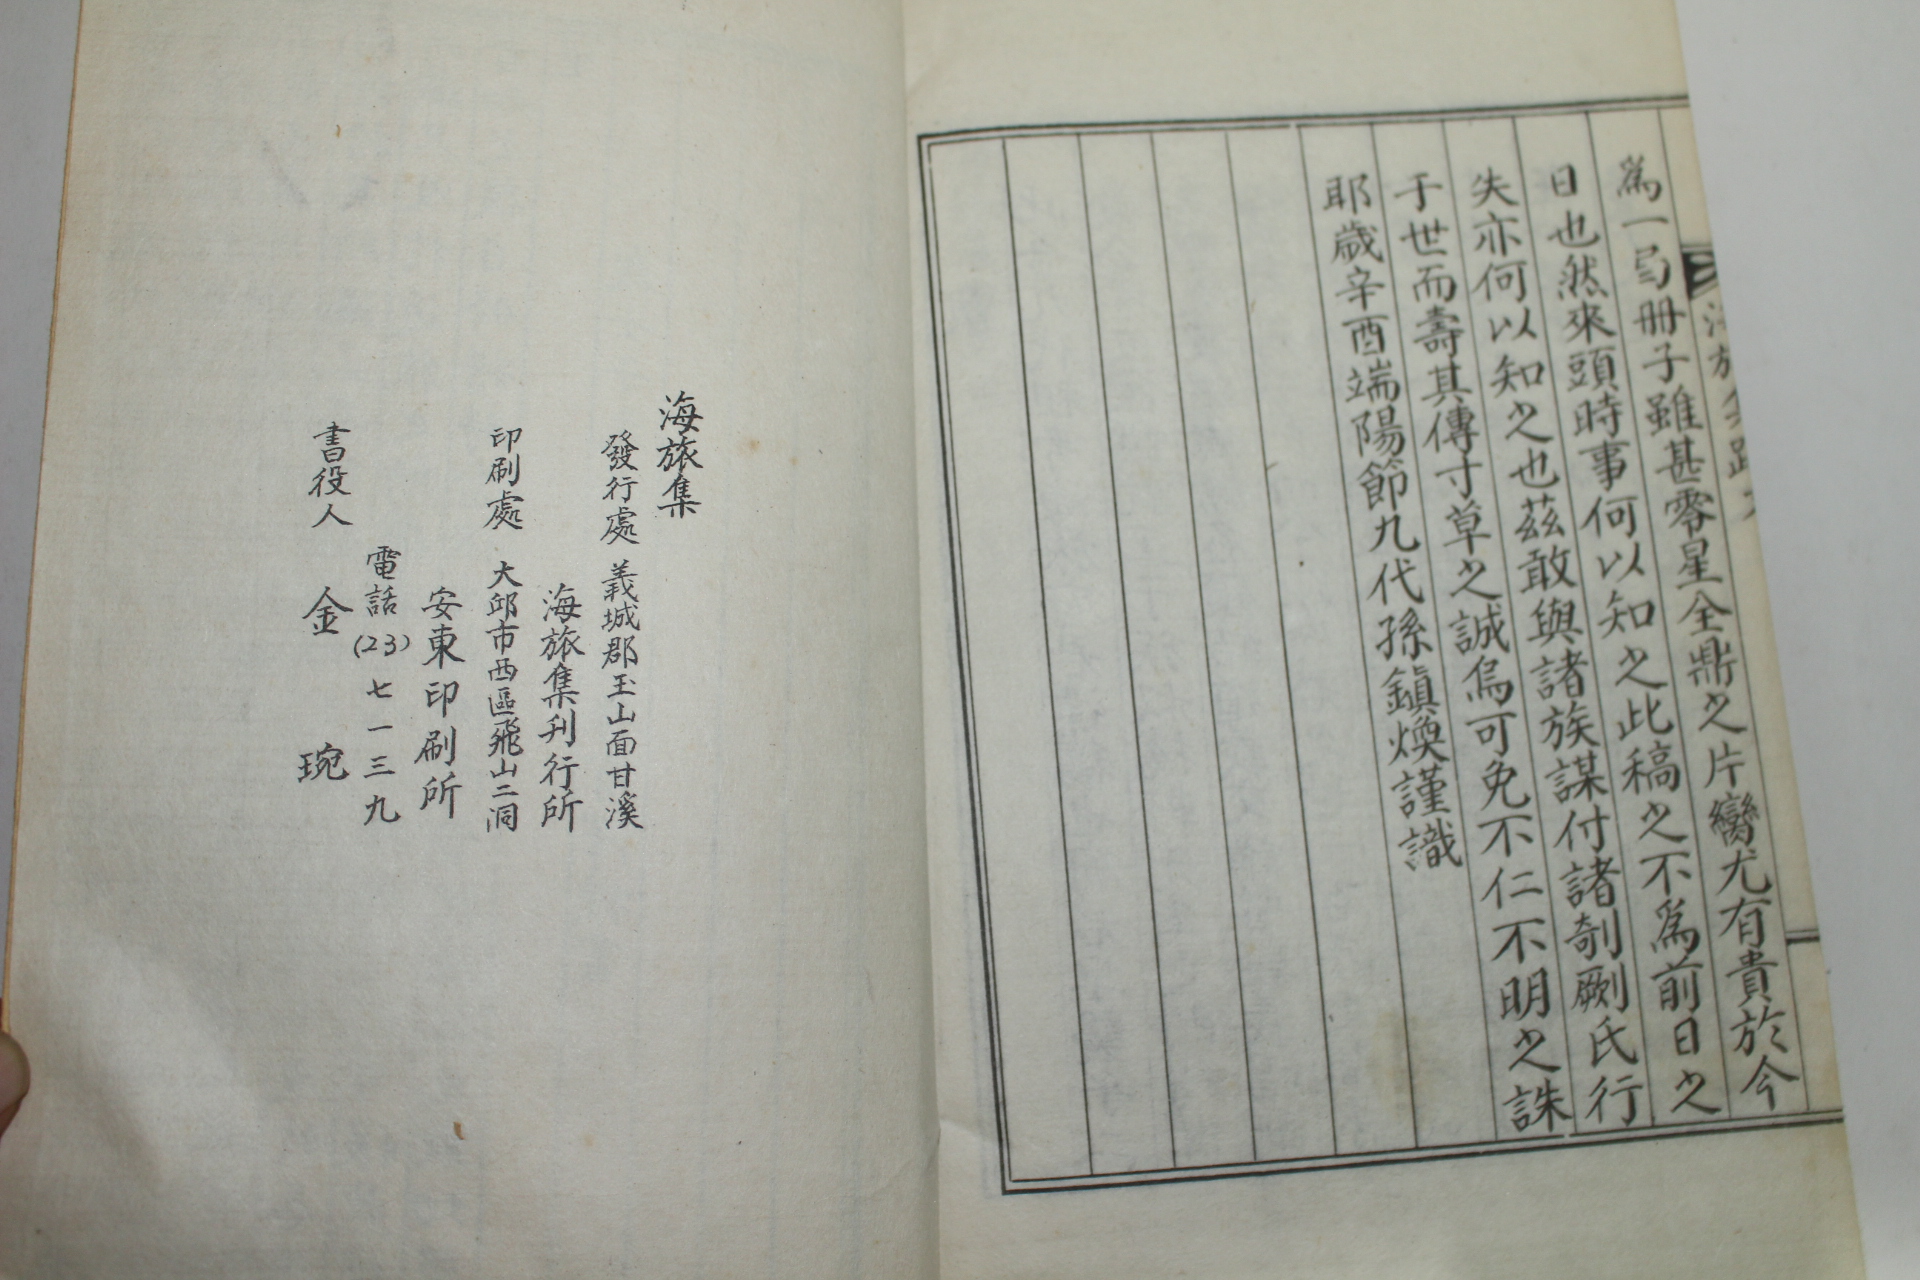 海旅集跋
爲一局册子雖甚零星全鼎之片臠尤有貴於今
日也然來頭時事何以知之此稿之不爲前日之
失亦何以知之也茲敢與諸族謀付諸剞劂氏行
于世而壽其傳寸草之誠烏可免不仁不明之誅
耶歲辛酉端陽節九代孫鎭煥謹識
海旅集
發行處 義城郡玉山面甘溪
海旅集刊行所
印刷處 大邱市西區飛山二洞
安東印刷所
電話(23)七一三九
書役人 金 琬